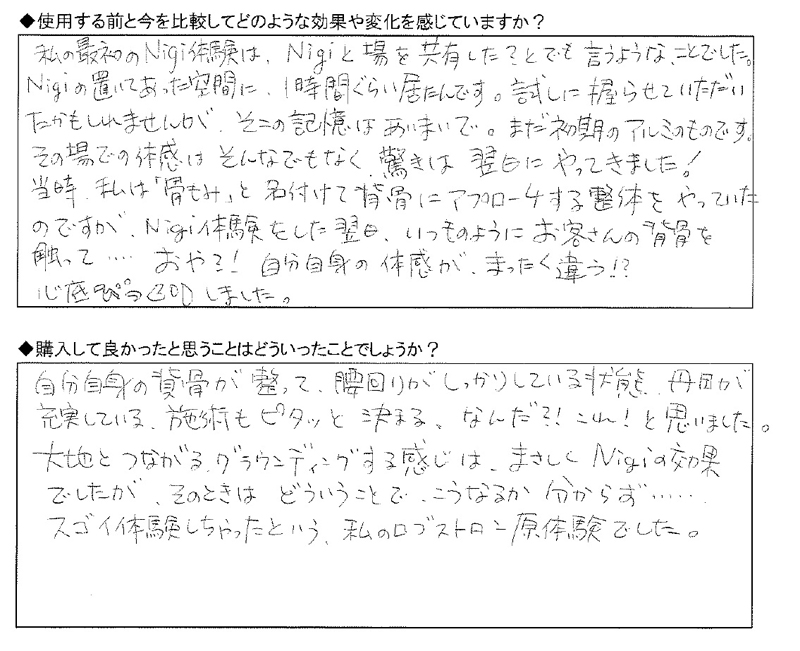 ◆使用する前と今を比較してどのような効果や変化を感じていますか？
私の最初のNigi体験は、Nigiと場を共有した?とでも言うようなことでした。
Nigiの置いてあった空間に、1時間ぐらい居たんです。試しに握らせていただい
たかもしれませんが、そこの記憶はあいまいで。まだ初期のアルミのものです。
その場での体感はそんなでもなく、驚きは翌日にやってきました!
当時、私は「骨もみ」と名付けて背骨にアプローチする整体をやっていた
のですが、Nigi体験をした翌日、いつものようにお客さんの背骨を
触って…… おや?! 自分自身の体感が、まったく違う!?
心底びっくりしました。
◆購入して良かったと思うことはどういったことでしょうか？
自分自身の背骨が整って、腰回りがしっかりしている状態、丹田が
充実している、施術もピタッと決まる。なんだ?! これ! と思いました。
大地とつながる、グラウンディングする感じは、まさしくNigiの効果
でしたが、そのときはどういうことで、こうなるか分からず……
スゴイ体験しちゃったという、私のロゴストロン原体験でした。